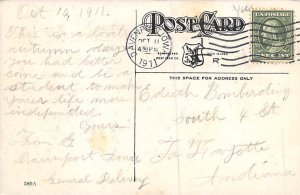 Oct 10, 1911.
This is a lovely
autumn day
you had better
come and be a
student to make
your life more
independent.
Yours
From G.
Davenport Iowa
General Delivery
POST CARD
DAVENPORT, IOWA
OCT 11
1911
THIS SPACE FOR ADDRESS ONLY
Edith
South 4 St
La Fayette
Indiana